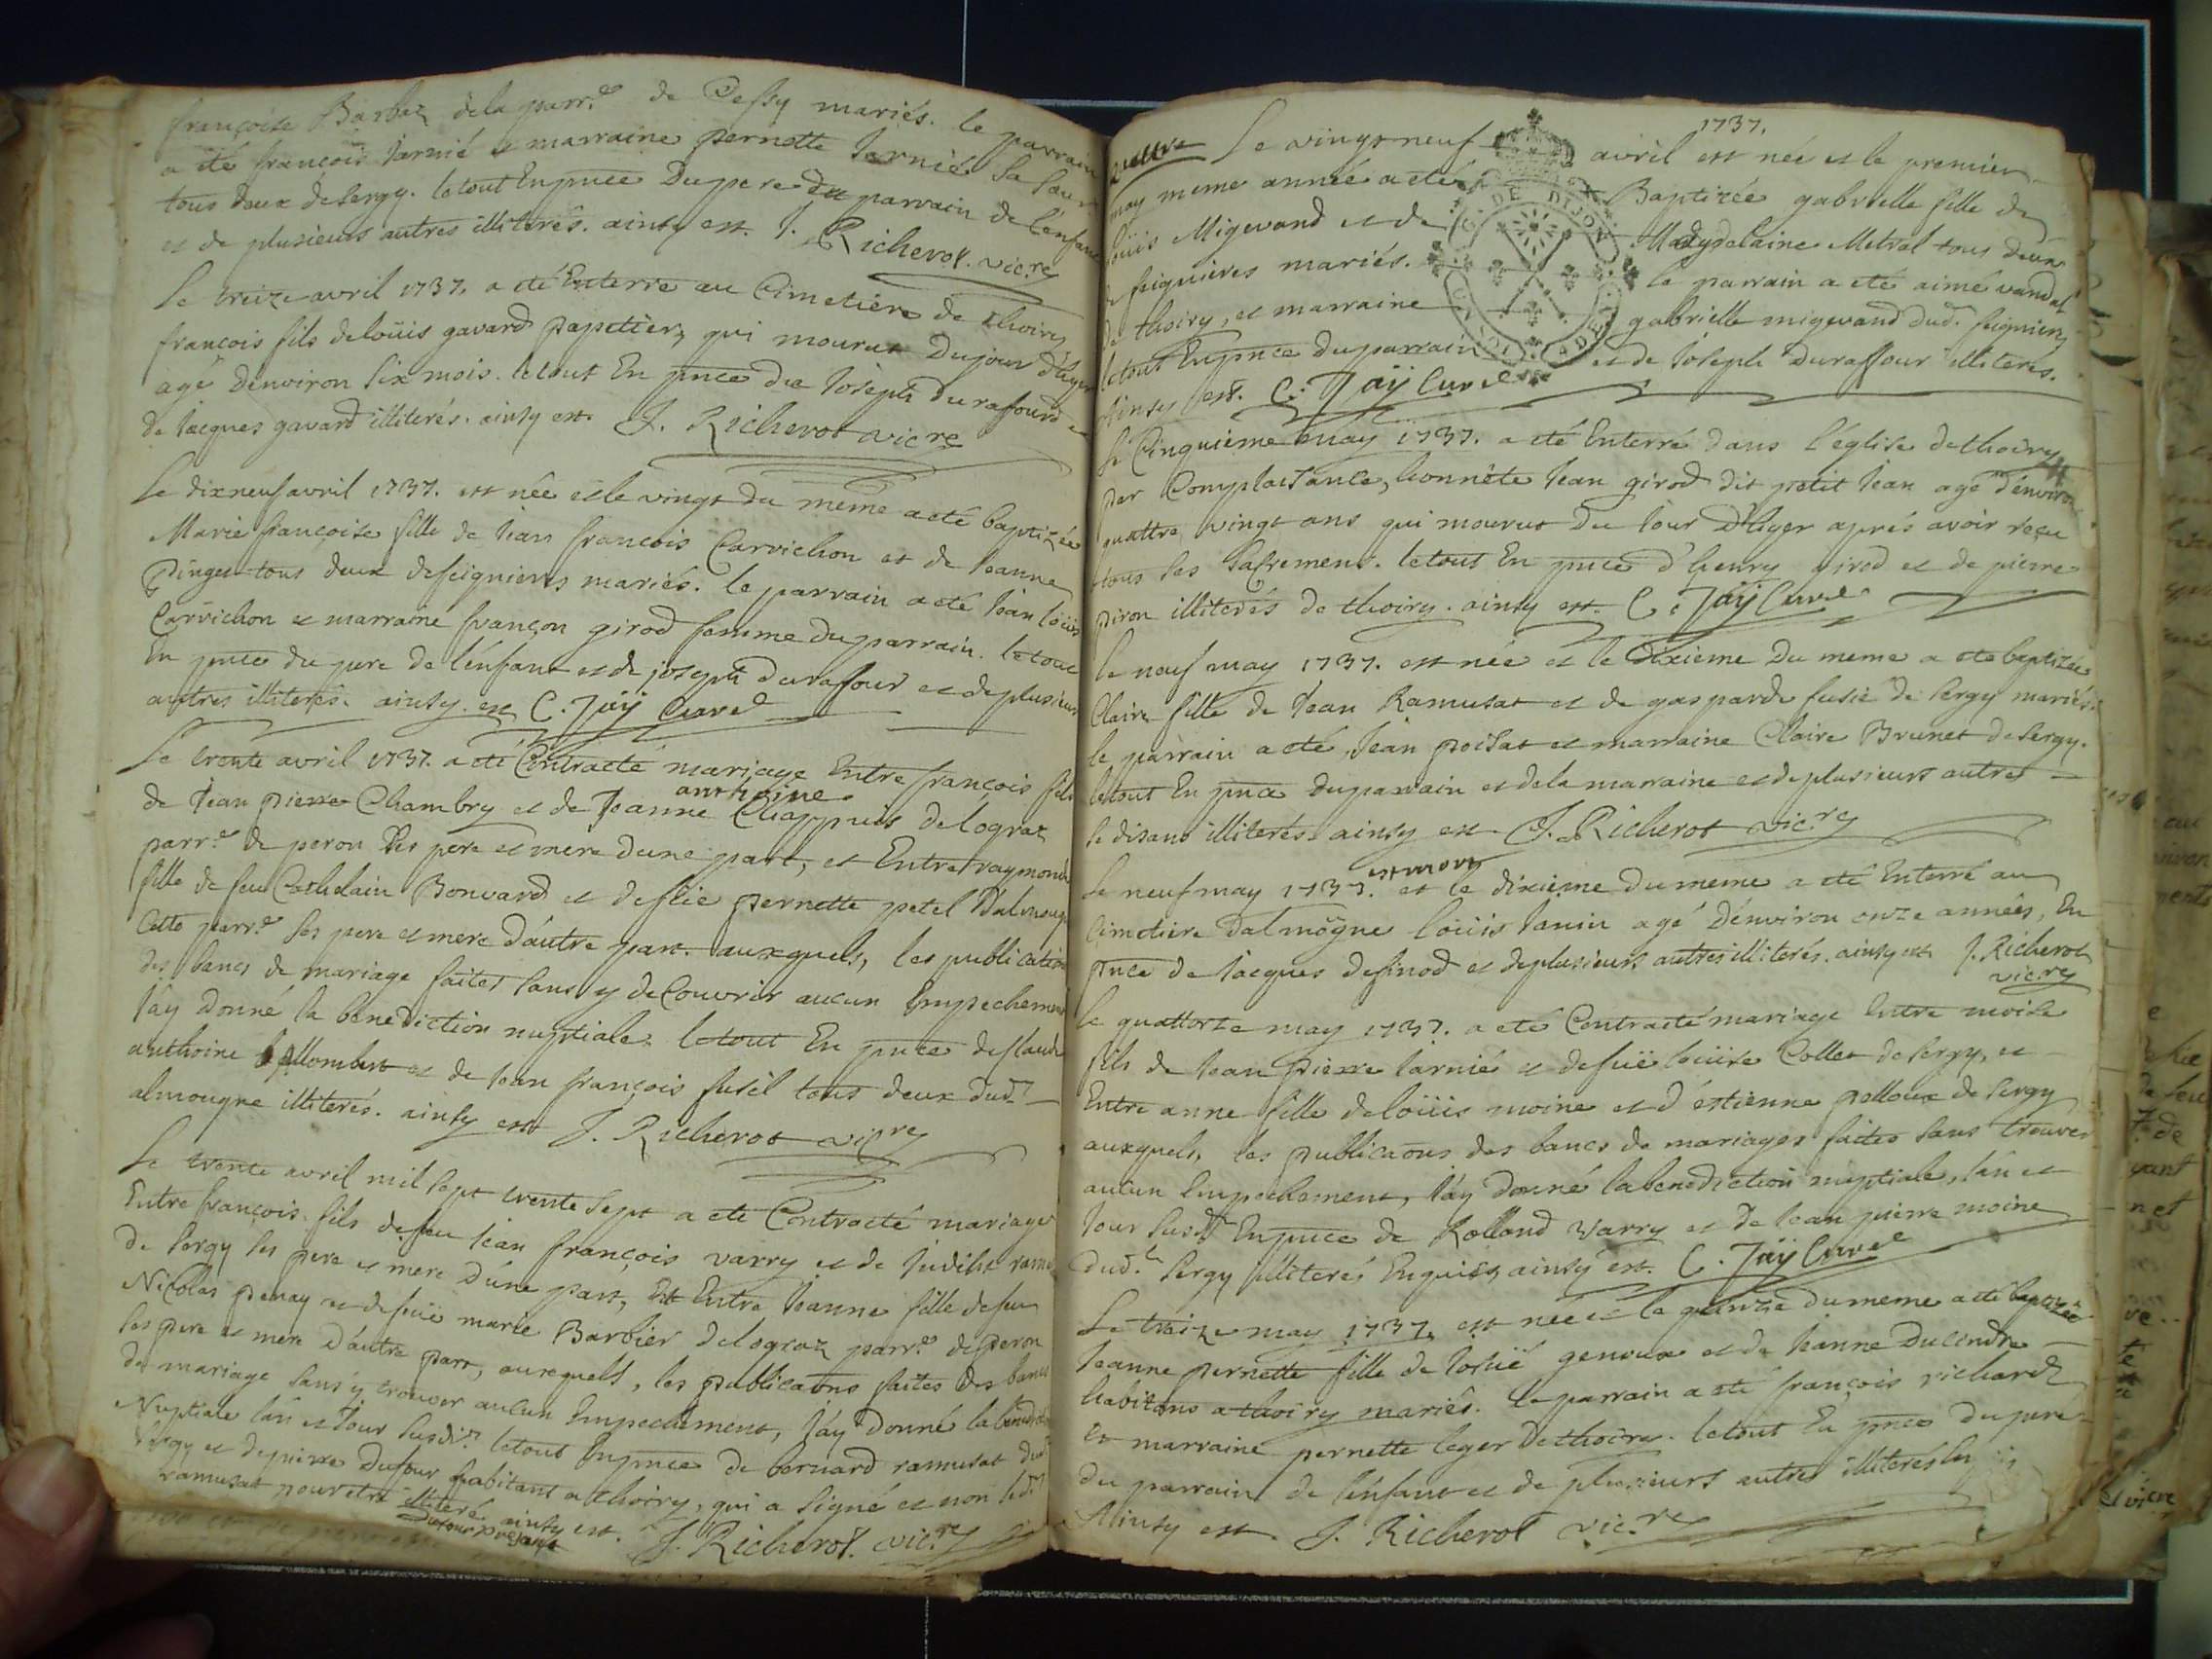 françoise Barbaz de la parr.e de Cessy mariés. le parrain
a été françois Jarnié et marraine pernette Jarnié sa soeur
tous deux de sergy. le tout En pnce Du pere du parrain de l'enfant
et de plusieurs autres illiterés. ainsy est. J. Richerot vic.re
Le treize avril 1737. a été Enterré au Cimetière de thoiry
françois fils de loüis gavard papetier, qui mourut Du jour d'hyer
agé d'environ six mois. le tout En pnce de Joseph durafourd et
de Jacques gavard illiterés. ainsy est. J. Richerot vic.re
Le dixneuf avril 1737. est née et le vingt du même a été baptizée
Marie françoise fille de Jean françois Carrichon et de Jeanne
tous deux de feignieres mariés. le parrain a été Jean loüis
Carrichon et marraine françon girod femme du parrain. le tout
En pnce du pere de l'enfant et de joseph durafour et de plusieurs
autres illiterés. ainsy est C. Jaÿ Curé
Le trente avril 1737. a été Contracté mariage Entre françois fils
anthoine
de Jean pierre Chambry et de Jeanne Chappuis de lograz
parr.e de peron ses pere et mere d'une part, et Entre raymonde
fille de feu Bonvard et de feüe pernette petel D'almougne
Cette parr.e ses pere et mere d'autre part. auxquels, les publications
des bancs de mariage faites sans y decouvrir aucun Empechement
J'ay donné la bénédiction nuptiale le tout En pnce de Claude
anthoine et de Jean françois fusil tous deux dud.t
almougne illiterés. ainsy est J. Richerot vic.re
Le trente avril mil sept trente sept a été Contracté mariage
Entre françois fils de feu Jean françois varry et de Judith
de sergy ses pere et mere d'une part, Et Entre Jeanne fille de feu
Nicolas penay et de feüe marie Barbier de lograz parr.e de peron
ses pere et mere d'autre part, auxquels, les publicaons faites des bancs
de mariage sans y trouver aucun Empechement, j'ay donné la
Nuptiale l'an et jour susdit. le tout En pnce de bernard ramusat dud
sergy et de pierre Dufour habitant a thoiry, qui a signé et non led.t
ramusat pour etre illiteré ainsy est. J. Richerot. vic.re
1737.
Le vingt neuf avril est née et le premier
may meme année a été Baptizée gabrielle fille de
loüis Migevand et de Magdelaine Metral tous deux
de feignieres mariés. le parrain a été aimé vandel
de thoiry, et marraine gabrielle migevand dud. feignieres
le tout En pnce du parrain et de Joseph Duraffour illiterés.
Ainsy est. C. Jaÿ Curé
G. DE DIJON
Le Cinquieme may 1737. a été Enterré dans l'église de thoiry
par Complaisance, honnête Jean girod dit petit Jean agé d'environ
quattre vingt ans qui mourut du Jour D'hyer aprés avoir reçu
tous ses sacremens. le tout En pnce d'henry girod et de pierre
piron illiterés de thoiry. ainsy est. C. Jaÿ Curé
Le neuf may 1737. est née et le dixieme Du meme a été baptizée
Claire fille de Jean Ramusat et de gasparde fusié de sergy mariés.
le parrain a été Jean poisat et marraine Claire Brunet de sergy.
le tout En pnce du parrain et de la marraine et de plusieurs autres
se disans illiterés ainsy est J. Richerot vic.re
est mort
Le neuf may 1737. et le dixieme du meme a été Enterré au
Cimetiere d'almögne loüis Janin agé D'environ onze années, En
pnce de Jacques definod et de plusieurs autres illiterés. ainsy est J. Richerot
vic.re
Le quattorze may 1737. a été Contracté mariage Entre moise
fils de Jean pierre Jarnié et de feüe loüise Collet de sergy, et
Entre anne fille de loüis moine et d'estienne pelloux de sergy
auxquels, les publicaons des bancs de mariages faites sans trouver
aucun Empechement, J'ay donné la benediction nuptiale, l'an et
Jour susd.t En pnce de Rolland Varry et de Jean pierre moine
dud.t sergy illiterés Enquis, ainsy est. C. Jaÿ Curé
Le treize may 1737. est née et le quinze du meme a été baptizée
Jeanne pernette fille de Josüé genoux et de Jeanne Ducindre
habitans a thoiry mariés. le parrain a été françois richard
et marraine pernette leger de thoiry. le tout En pnce du pere
du parrain de l'enfant et de plusieurs autres illiterés
Ainsy est J. Richerot vic.re